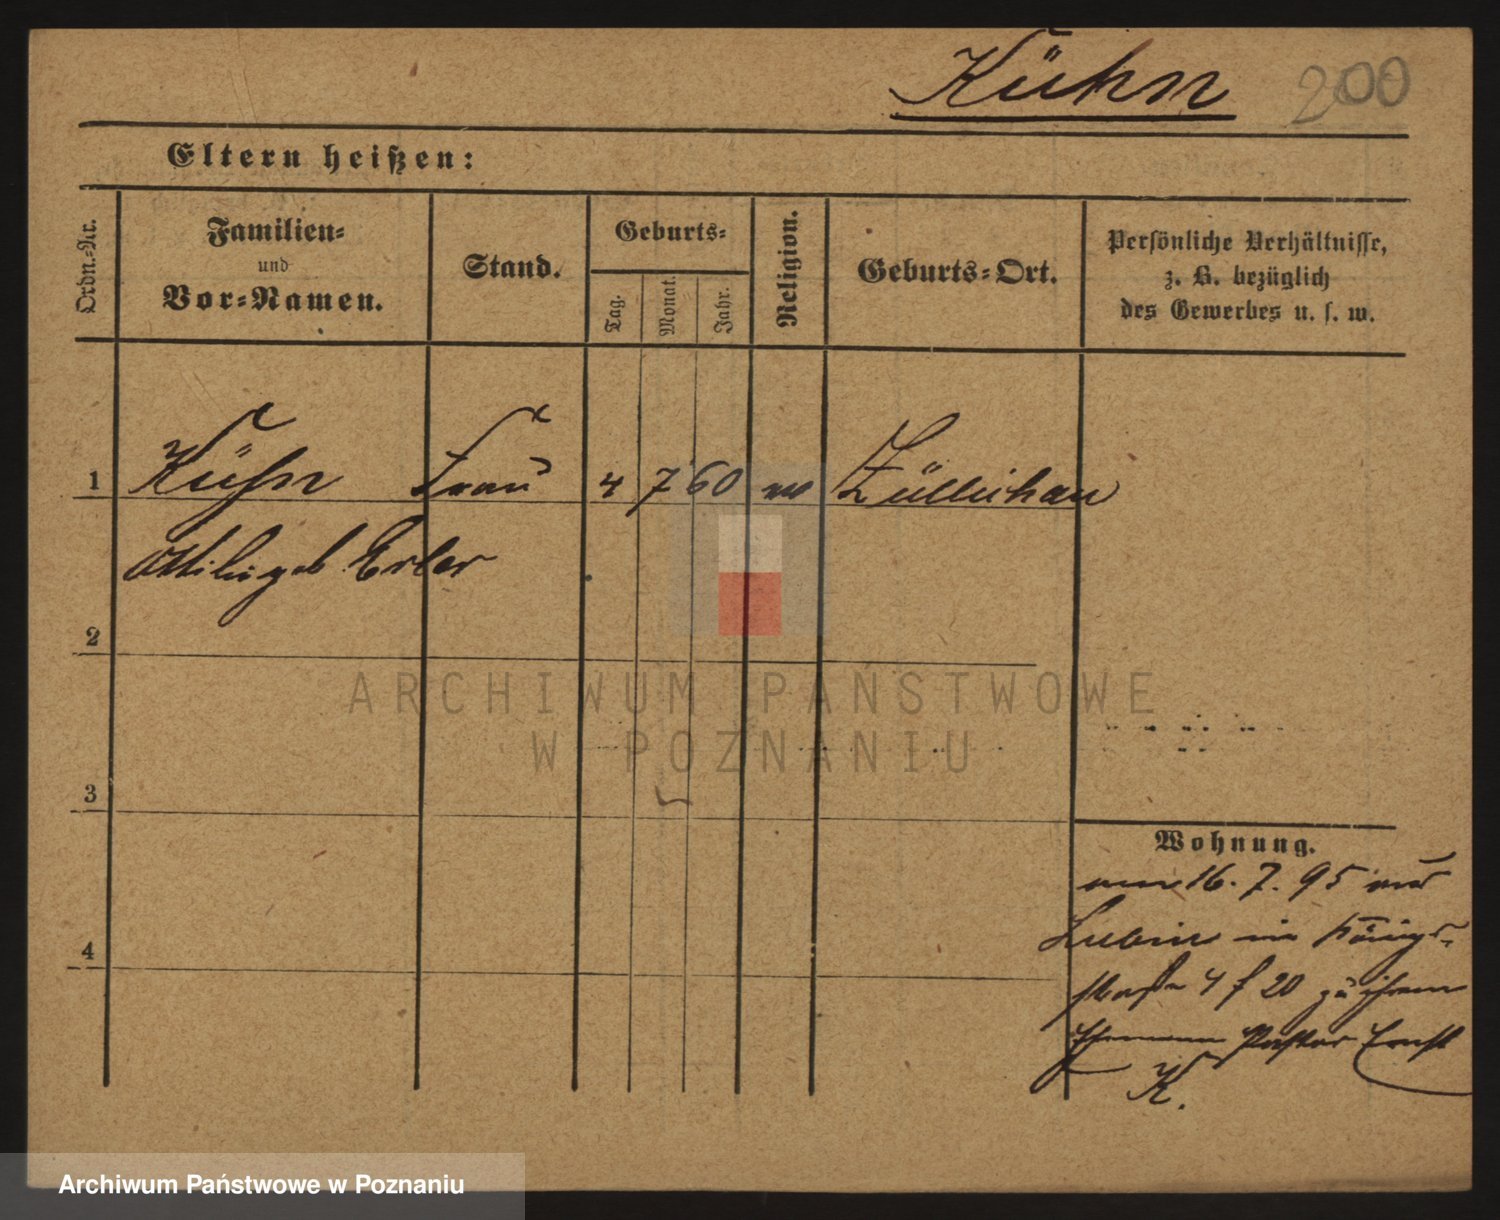 Kühn 200
Eltern heißen:
Ordn.-Nr.
Familien-
und
Vor-Namen.
Stand.
Geburts-
Tag.
Monat.
Jahr.
Religion.
Geburts-Ort.
Persönliche Verhältnisse,
z. B. bezüglich
des Gewerbes u. s. w.
1 Kühn Frau 4 7 60 Züllichau
geb. Erler
2
3
4
Wohnung.
am 16. 7. 95 aus
Lubin in Königs-
straße 4 f 20 zu ihrem
Ehemann Pastor Ernst
K.
ARCHIWUM PAŃSTWOWE
W POZNANIU
Archiwum Państwowe w Poznaniu